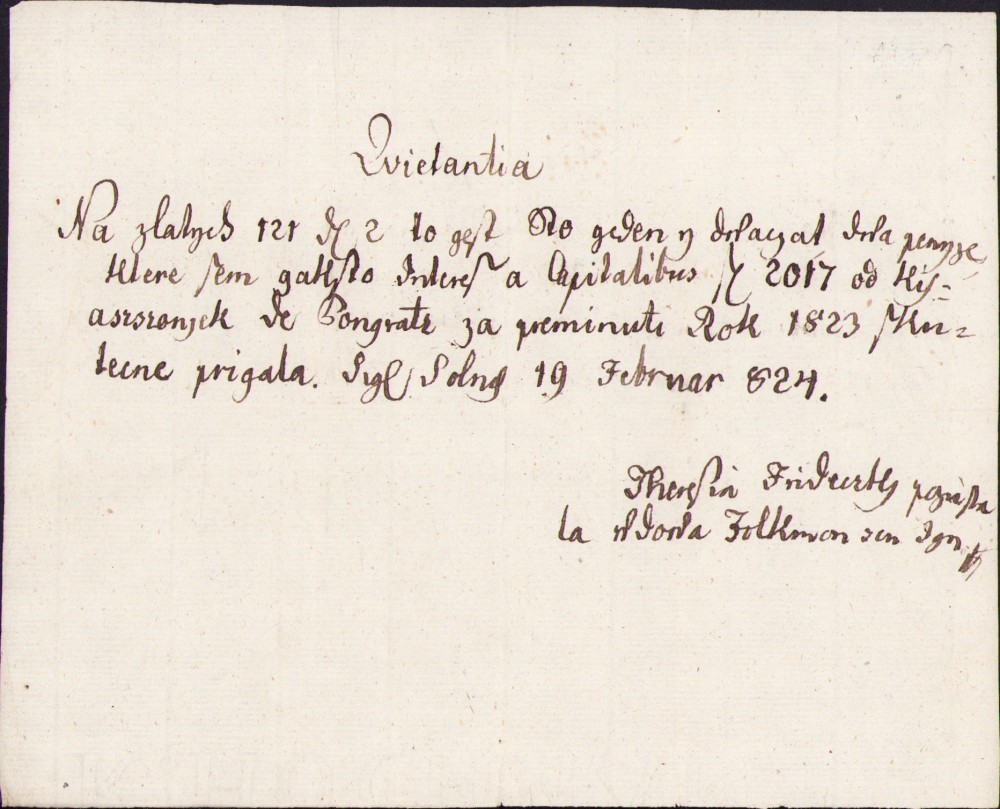 Qvietantia
Na zlatych 121 d 2 to gest Sto geden y dvaczat dva penyze
ktere sem gakssto Interess a Capitalibus f 2017 od Kis=
aszszonjek de Pongratz za preminuti Rok 1823 sku=
tecne prigala. Sig Solna 19 Februar 824.
Theresia
la vdova Folkmon